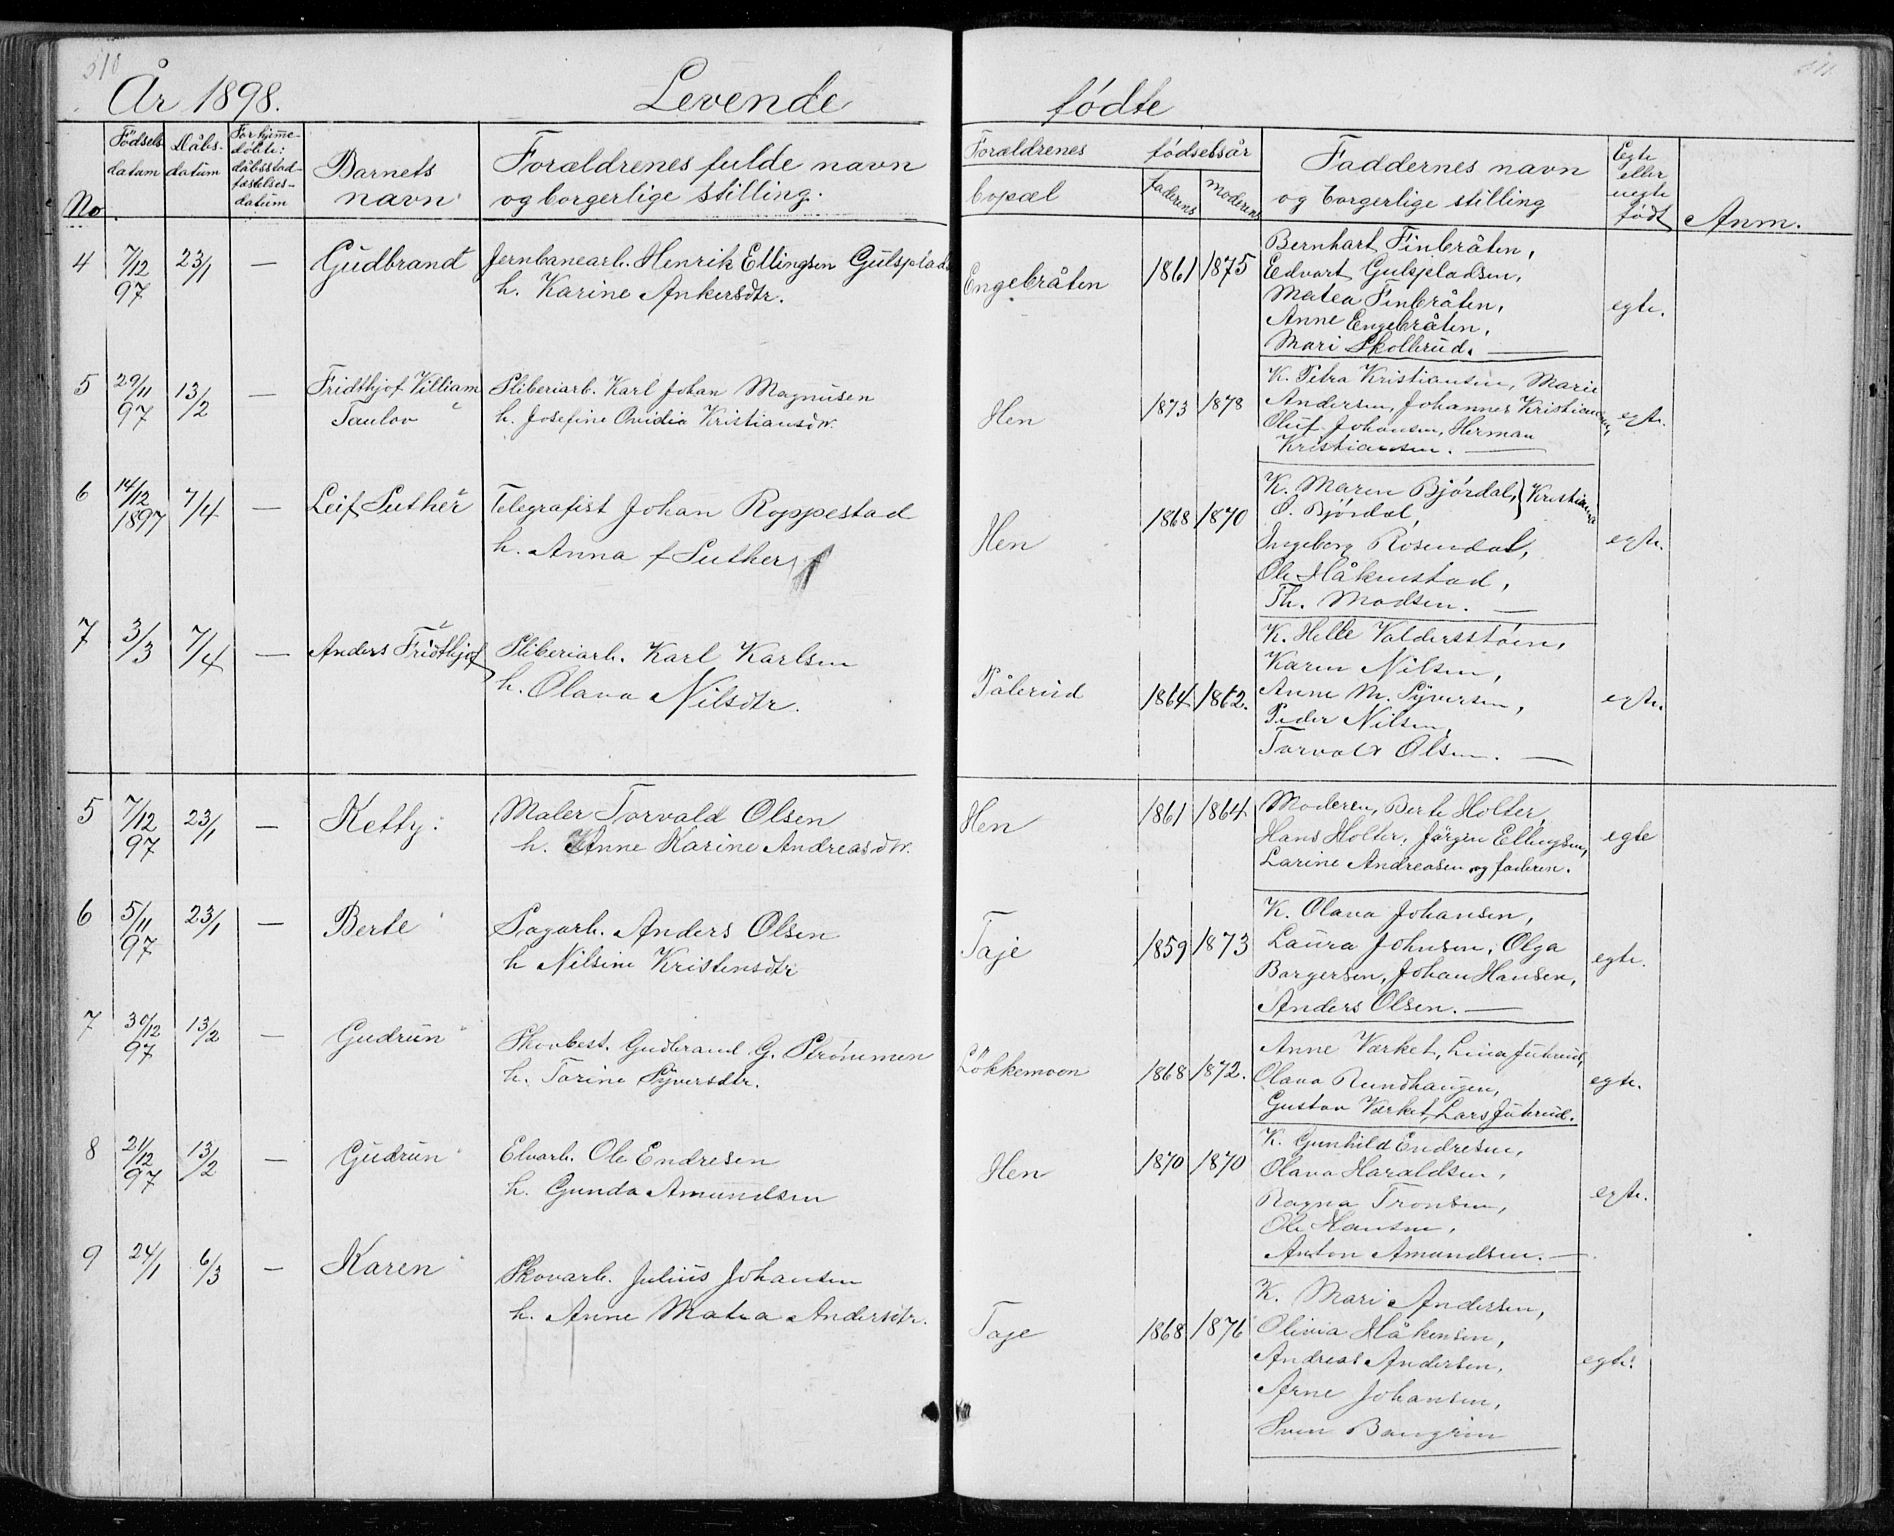 510
År 1898. Levende
No
Födsels datum
Dåbs- datum
dåbsstad- fæstelses- datum
Barnets navn
Forældrenes fulde navn
og borgerlige stilling.
4 7/12 97 23/1 — Gudbrand Jernbanearb. Henrik Ellingsen Gulsplads
h. Karine Ankersdtr.
5 29/11 97 13/2 — Fridthjof Villiam Sliberiarb. Karl Johan Magnusen
Taulov h. Josefine Ovidia Kristiansdtr.
6 14/12 1897 7/4 — Leif Luther Telegrafist Johan Roppestad
h. Anna f Luther
7 3/3 7/4 — Anders Fridthjof Sliberiarb. Karl Karlsen
h. Olava Nilsdtr.
5 7/12 97 23/1 — Ketty. Maler Torvald Olsen
h. Anne Karine Andreasdtr.
6 5/11 97 23/1 — Berte Sagarb. Anders Olsen
h Nilsine Kristensdtr
7 30/12 97 13/2 — Gudrun Skovbest. Gudbrand G. Strömmen
h. Torine Syversdtr.
8 21/12 97 13/2 — Gudrun Elvarb. Ole Endresen
h. Gunda Amundsen
9 24/1 6/3 — Karen Skovarb. Julius Johansen
h. Anne Matea Andersdtr.
511
födte
Forældrenes födselsår
bopæl
faderens
moderens
Faddernes navn
og borgerlige stilling
Egte
eller
uegte
födt
Anm.
Engebråten 1861 1875 Bernhart Finbråten,
Edvart Gulspladsen,
Matea Finbråten, egte.
Anne Engebråten,
Mari Skollerud. —
Hen 1873 1878 K. Petra Kristiansen, Marie
Andersen, Johannes Kristiansen, egte.
Oluf Johansen, Herman
Kristiansen. —
Hen 1868 1870 K. Maren Björdal, } Kristiania
O. Björdal,
Ingeborg Rosendal, egte.
Ole Håkenstad,
Th. Madsen. —
Pålerud 1864 1862. K. Helle Valdersstöen,
Karen Nilsen,
Anne M. Syversen, egte.
Peder Nilsen,
Torvald Olsen. —
Hen 1861 1864 Moderen, Berte Holter,
Hans Holter, Jörgen Ellingsen, egte
Larine Andreasen og faderen.
Taje 1859 1873 K. Olava Johansen,
Laura Johnsen, Olga
Borgersen, Johan Hansen, egte.
Anders Olsen. —
Lökkemoen 1868 1872. AnneVærket, Lina Juterud,
Olava Rundhaugen, egte.
Gustav Værket, Lars Juterud.
Hen 1870 1870 K. Gunhild Endresen,
Olava Haraldsen,
Ragna Tronsen, egte.
Ole Hansen,
Anton Amundsen. —
Taje 1868 1876 K. Mari Andersen,
Olivia Håkensen,
Andreas Andersen, egte.
Arne Johansen,
Sven